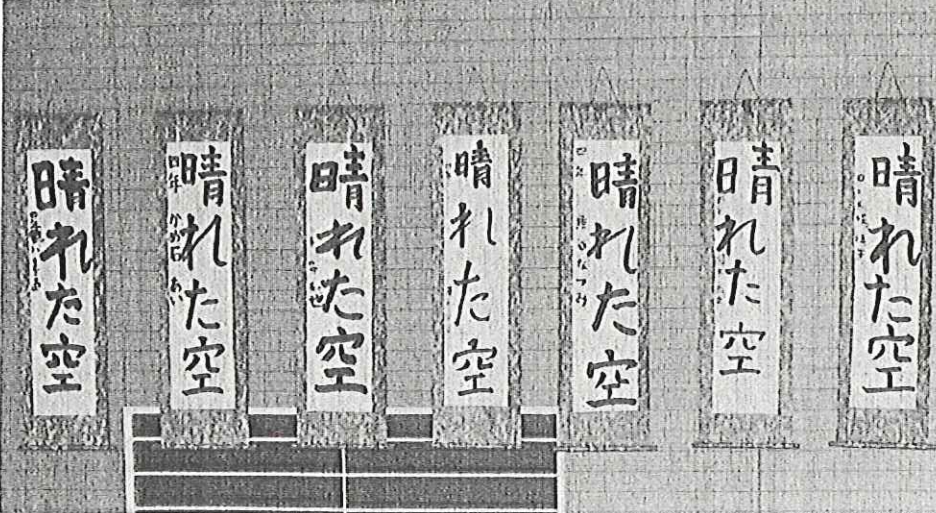 晴れた空
晴れた空
四年 かわ口 あい
晴れた空
晴れた空
晴れた空
晴れた空
晴れた空